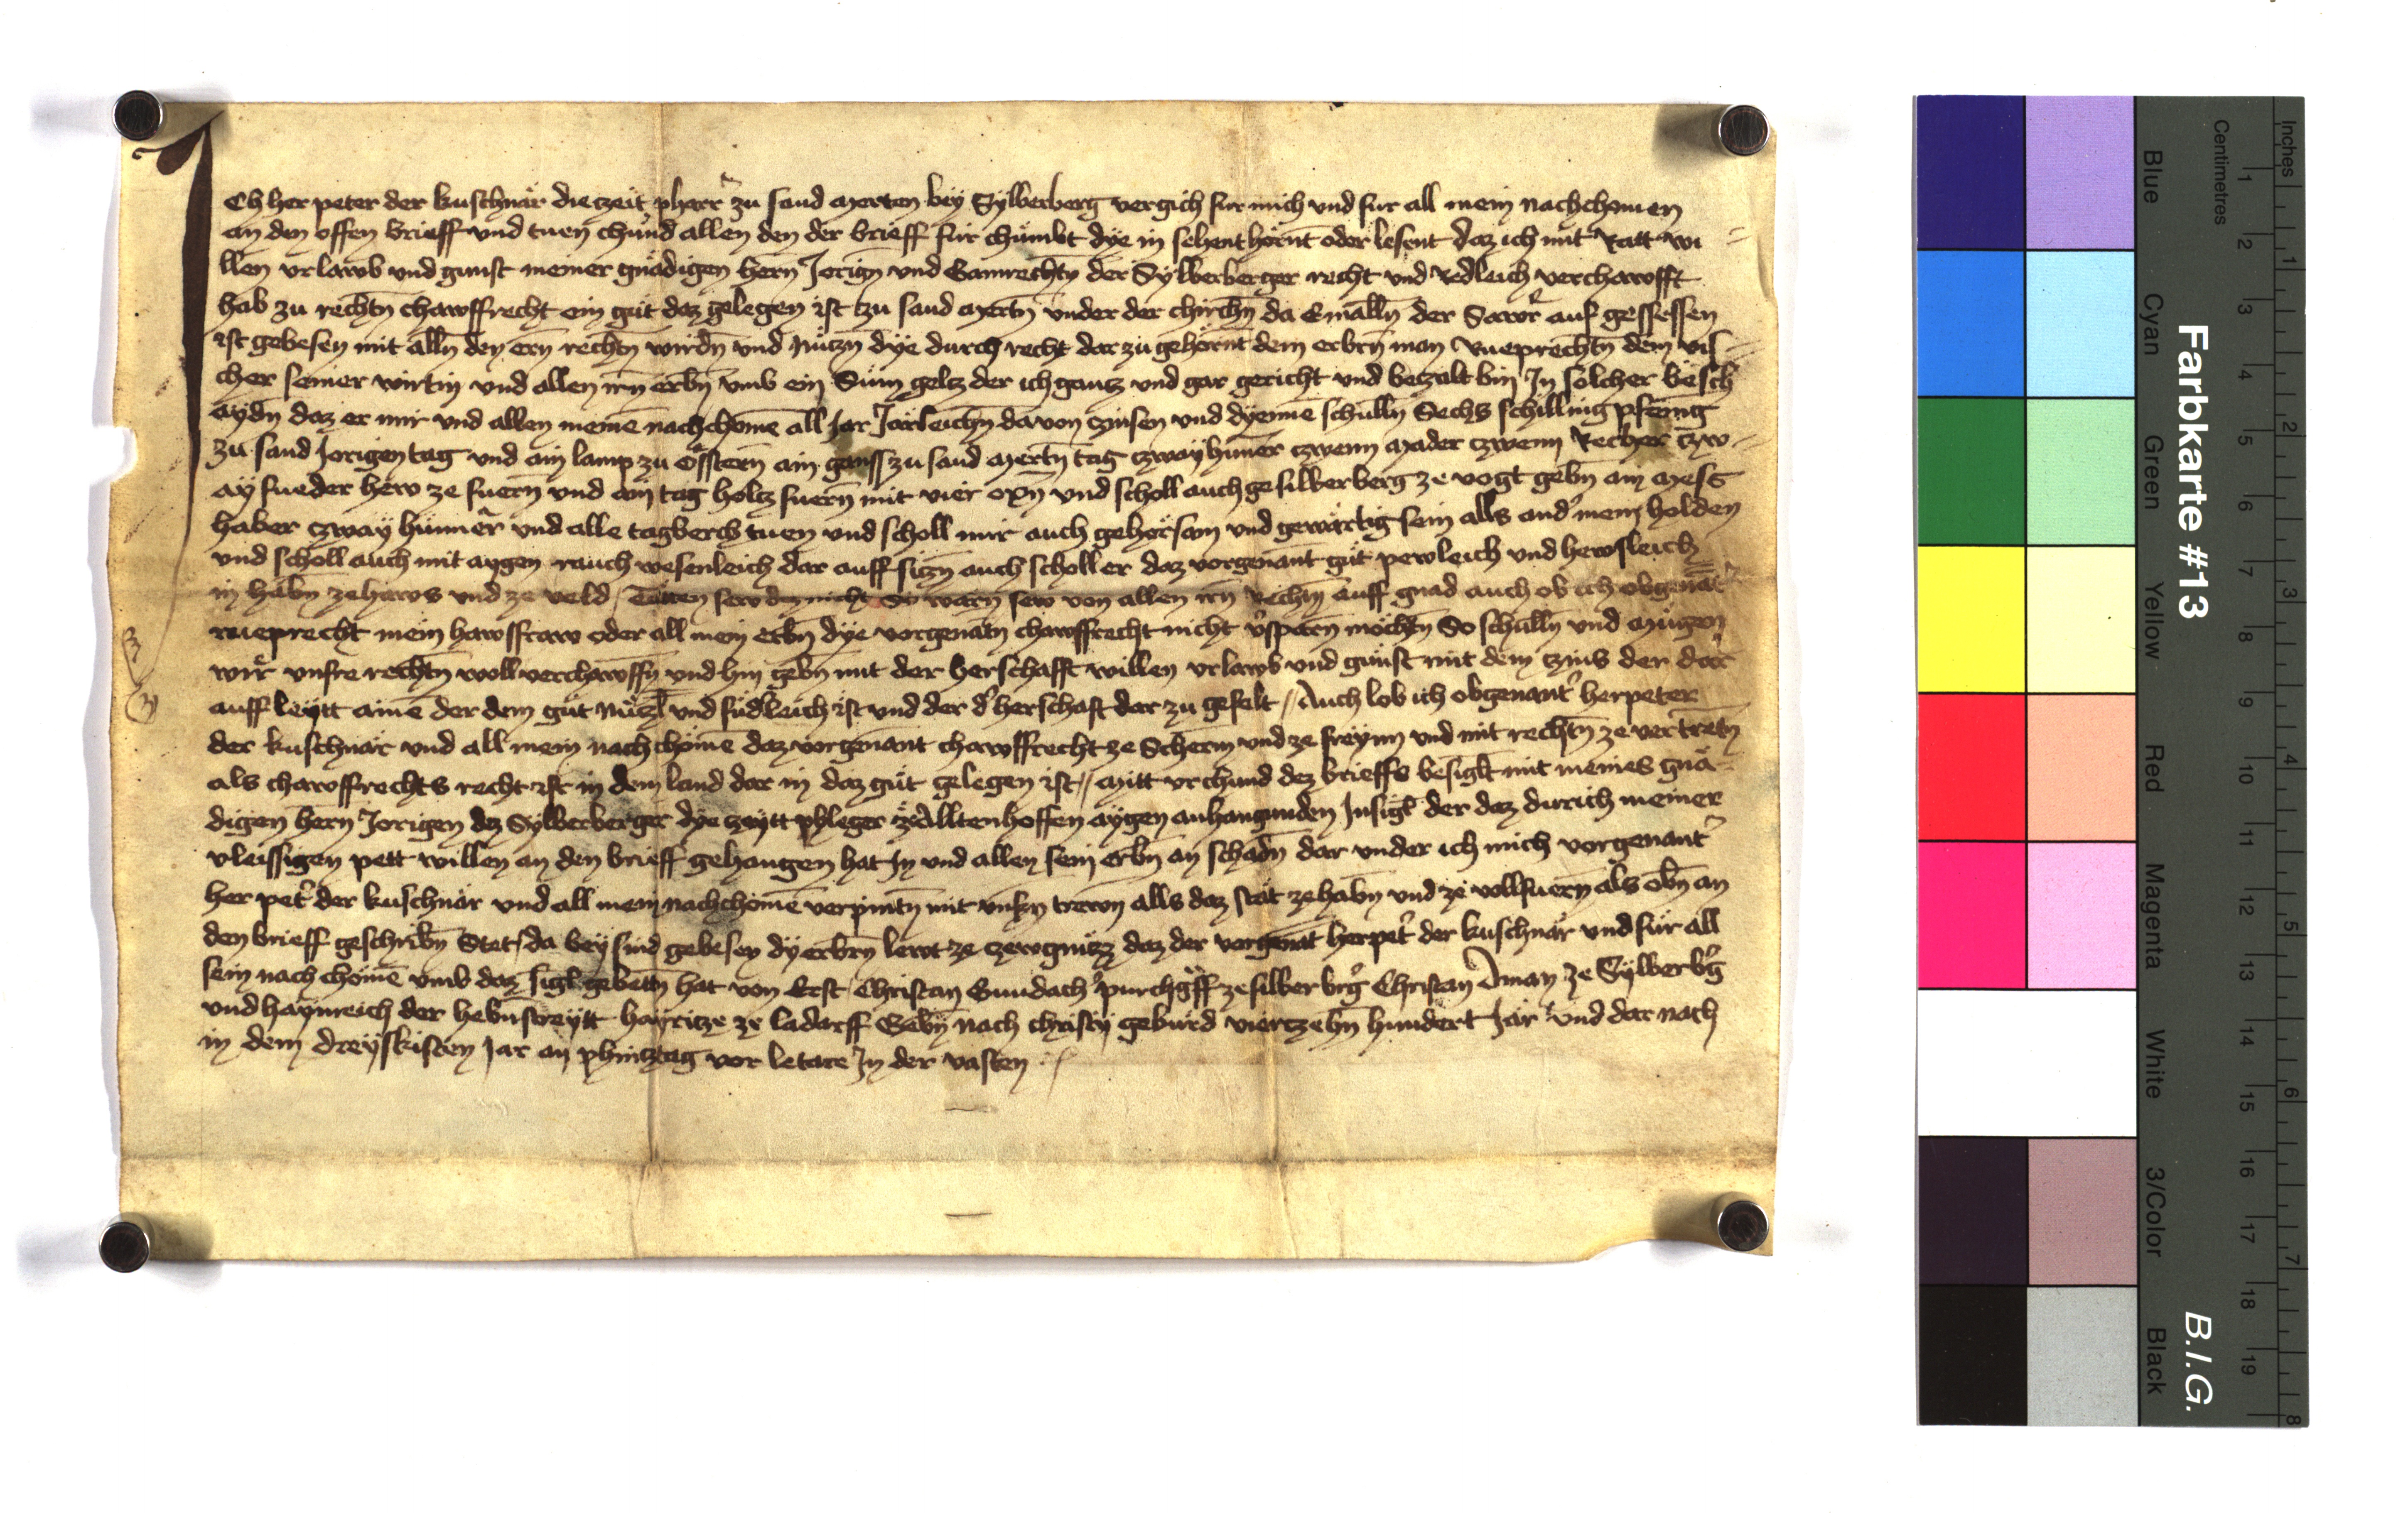 Ich her peter der kuschnär die czeit pharr̄ zu sand Merten bey Sylberberg vergich fur mich und fur all mein nachchomen
an den offen brieff und tuen chund allen den der brieff für chümbt dye in sehent hörnt oder lesent daz ich mit Ratt wi=
llen vrlawb und gunst meiner gnädigen hern Jorign und Gamrechtn̄ der Sylberberger recht und Redleich verchawfft
hab zu rechtn̄ chawffrecht ein güt daz gelegen ist zu sand Mertn̄ under der chirchn̄ da der auf gessessen
ist gebesen mit alln̄ den ern̄ rechtn̄ wirdn̄ und nützn̄ dye durch recht dar zü gehornt dem erbrn̄ man Rueprechtn̄ dem vis=
cher seiner wirtin und allen irn̄ erbn̄ umb ein Süm geltz der ich gantz und gar gericht und betzalt bin In solcher besch
aydn̄ daz er mir und allen meinē nachchomē all Jar Järleichn̄ davon czinsen und dyennē schulln̄ Sechs schilling pfenīg
zu sand Jorigen tag und ain lamp zu Osstern̄ ain ganss zu sand Mertn̄ tag czway huner czwenn Mader czwenn Recher czw=
ay fueder hew ze fuern̄ und ain tag holcz fuern̄ mit vier oxn̄ und scholl auch ge silberberg ze vogt gebn̄ ain Mess
haber czway hünner und alle tagberch tuen und scholl mir auch gehorsam und gewärtig sein alls and' mein holden
und scholl auch mit aygen rauch wesenleich dar auff siczn̄ auch scholl er daz vorgenant güt pewleich und hewsleich
in habn̄ ze haws und ze veld / Täten sew dez nicht So wärn̄ sew von allen irn̄ Rechtn̄ auff gnad auch ob ich obgenāt
rueprecht mein hawsfraw oder all mein erbn̄ dye vorgenātn̄ chawffrecht nicht v'sparn̄ möchtn̄ So schulln̄ und mügen
wir unsre rechtn̄ woll verchawffn̄ und hin gebn̄ mit der herschafft willen vrlawb und günst mit dem czins der dar
auff leytt ainē der dem güt nüczl̄ und füdleich ist und der d' herschaft dar zu gefelt // Auch lob ich obgenant' her peter
der kuschnär und all mein nachchomē daz vorgenant chawffrecht ze Scherm und ze freynn und mit rechtn̄ ze vertretn̄
als chawffrechts recht ist in dem land dar in daz güt gelegen ist // Mitt vrchund dez brieffs besiglt mit meines gnä=
digen hern̄ Jorigen dez Sylberberger dye czeytt phleger ze Alltenhoffen aygen anhangunden Insigl der daz durich meiner
vleissigen pett willen an den brieff gehangen hat In und allen sein erbn̄ an schadn̄ dar under ich mich vorgenant'
her pet' der kuschnär und all mein nachchomē verpintn̄ mit unsrn trewn alls daz stät ze habn̄ und ze vollfuern̄ als obn̄ an
den brieff geschribn̄ Stet / da bey sind gebesen dy erbrn̄ lewt ze czewgnüzz daz der vorgenāt her pet' der kuschnär und für all
sein nach chomē umb daz sigl gebettn̄ hat von Erst Christan Gundach' purchg'ff ze silberb'g Christan Aman ze Sylberb'g
und haynreich der hebnstreytt hayricze ze ladarff Gebn̄ nach christi geburd viertzehn̄ hundert Jar und dar nach
in dem dreyskisten Jar an phincztag vor letare In der vasten
Farbkarte #13
B.I.G.
Inches
Centimetres
1 2 3 4 5 6 7 8 9 10 11 12 13 14 15 16 17 18 19
1 2 3 4 5 6 7 8
Blue
Cyan
Green
Yellow
Red
Magenta
White
3/Color
Black